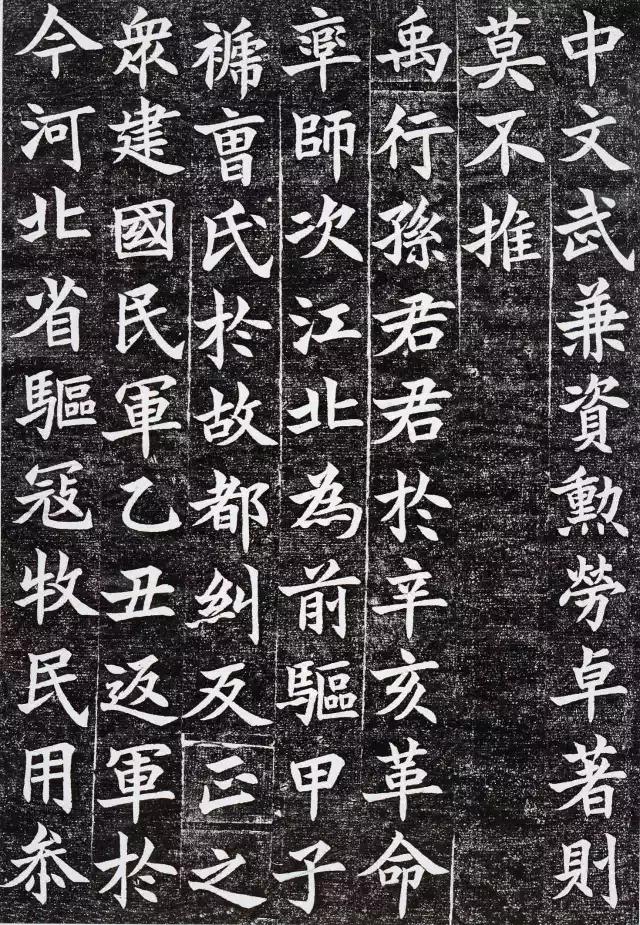 中文武兼資勲勞卓著則
莫不推
禹行孫君君於辛亥革命
率師次江北為前驅甲子
褫曺氏於故都糾反正之
眾建國民軍乙丑返軍於
今河北省驅冦牧民用叅